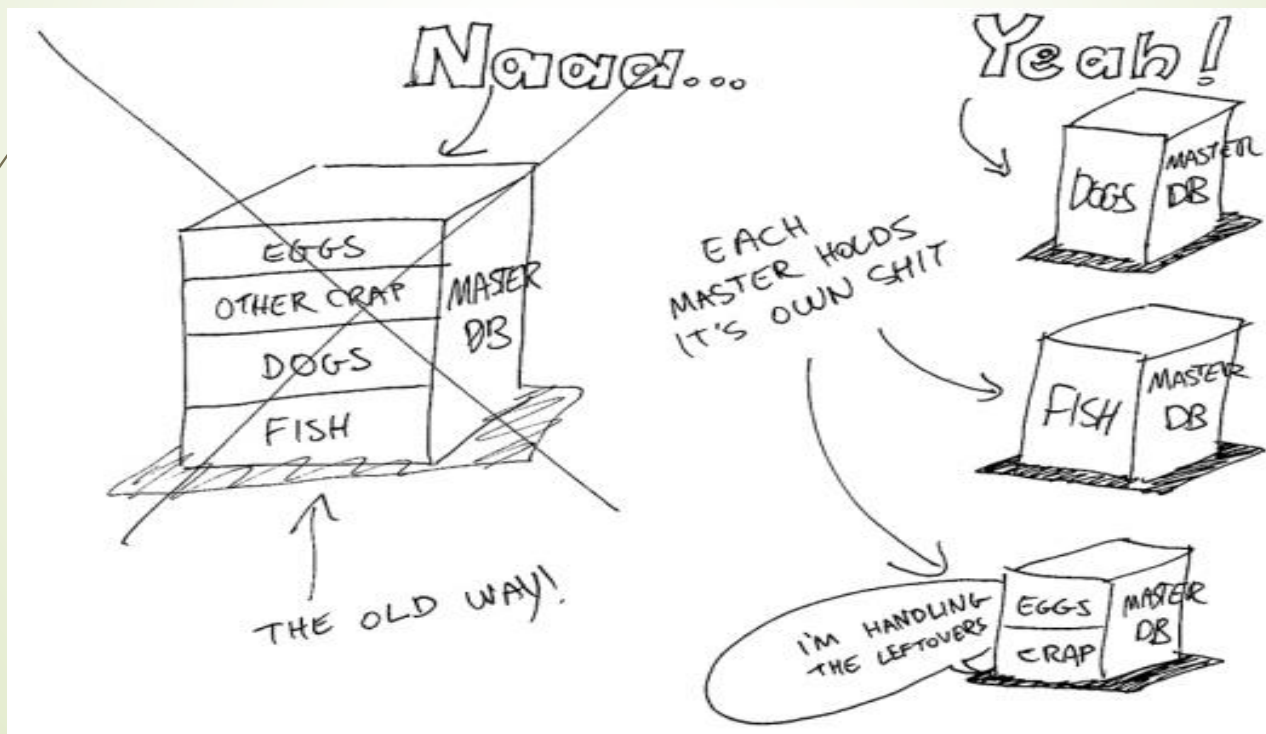 Naaa...
EGGS
OTHER CRAP
DOGS
FISH
MASTER
DB
THE OLD WAY!
Yeah!
EACH
MASTER HOLDS
IT'S OWN SHIT
DOGS
MASTER
DB
FISH
MASTER
DB
I'M HANDLING
THE LEFTOVERS
EGGS
CRAP
MASTER
DB